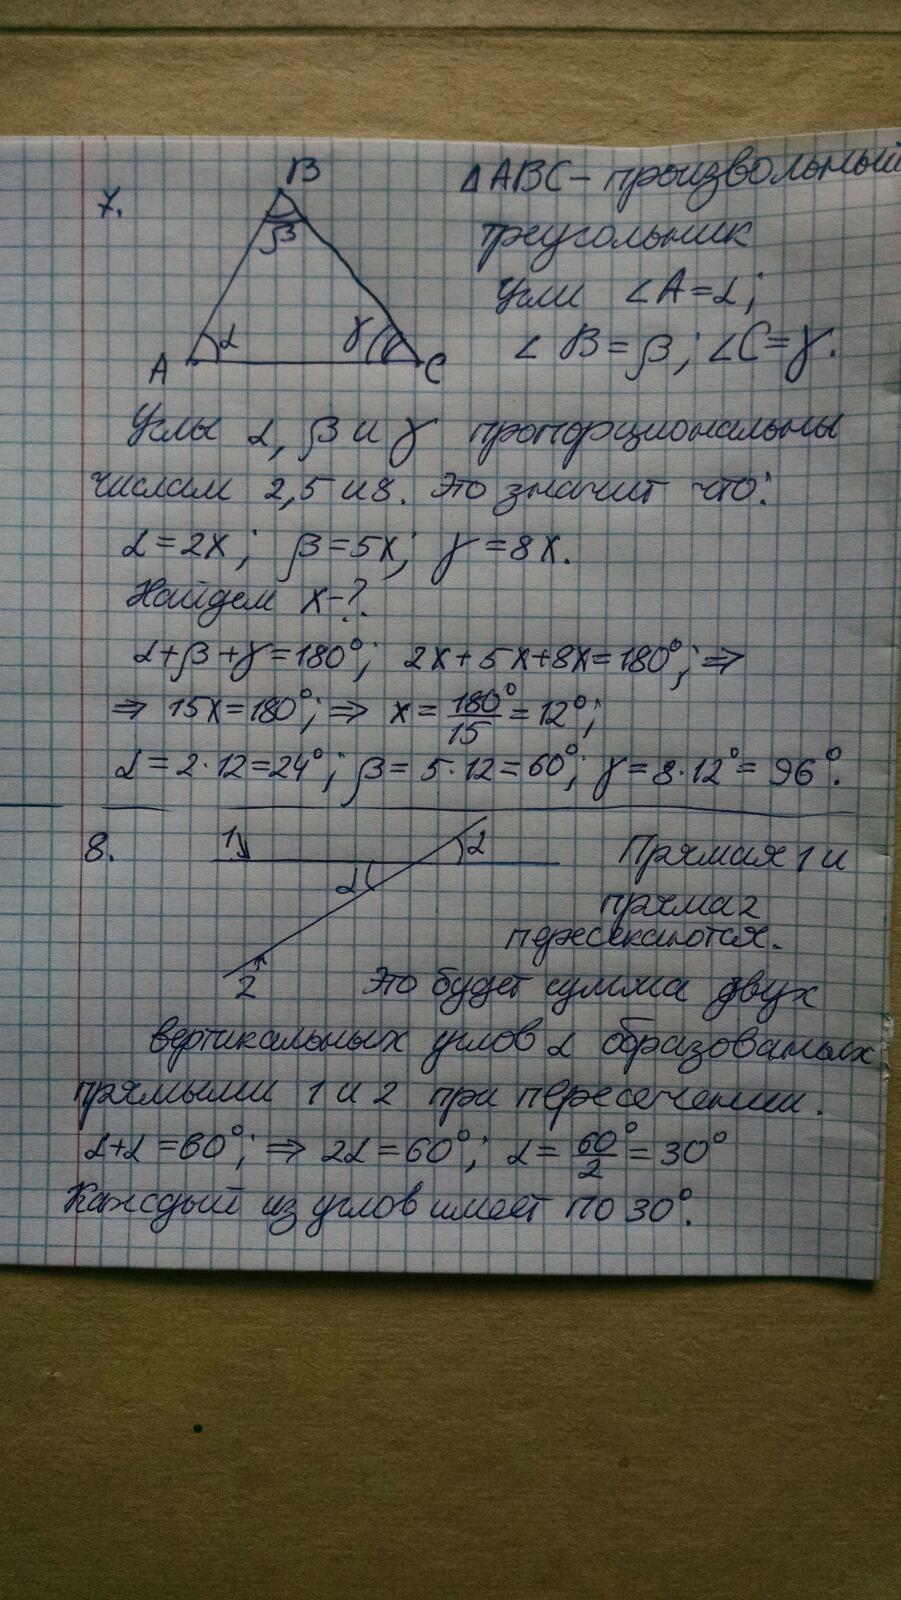 7.
B
β
α
γ
A
C
ΔABC – произвольный
треугольник
Угли ∠A=α;
∠B=β; ∠C=γ.
Углы α, β и γ пропорциональны
числам 2,5 и 8. Это значит что:
α=2x; β=5x; γ=8x.
Найдем x-?.
α+β+γ=180°; 2x+5x+8x=180°; ⇒
⇒ 15x=180°; ⇒ x=180°/15=12°;
α=2·12=24°; β=5·12=60°; γ=8·12°=96°.
8.
1
α
α
2
Прямая 1 и
пряма 2
пересекаются.
Это будет сумма двух
вертикальных углов α образованых
прямыми 1 и 2 при пересечении.
α+α=60°; ⇒ 2α=60°; α=60°/2=30°
Каждый из углов имеет по 30°.